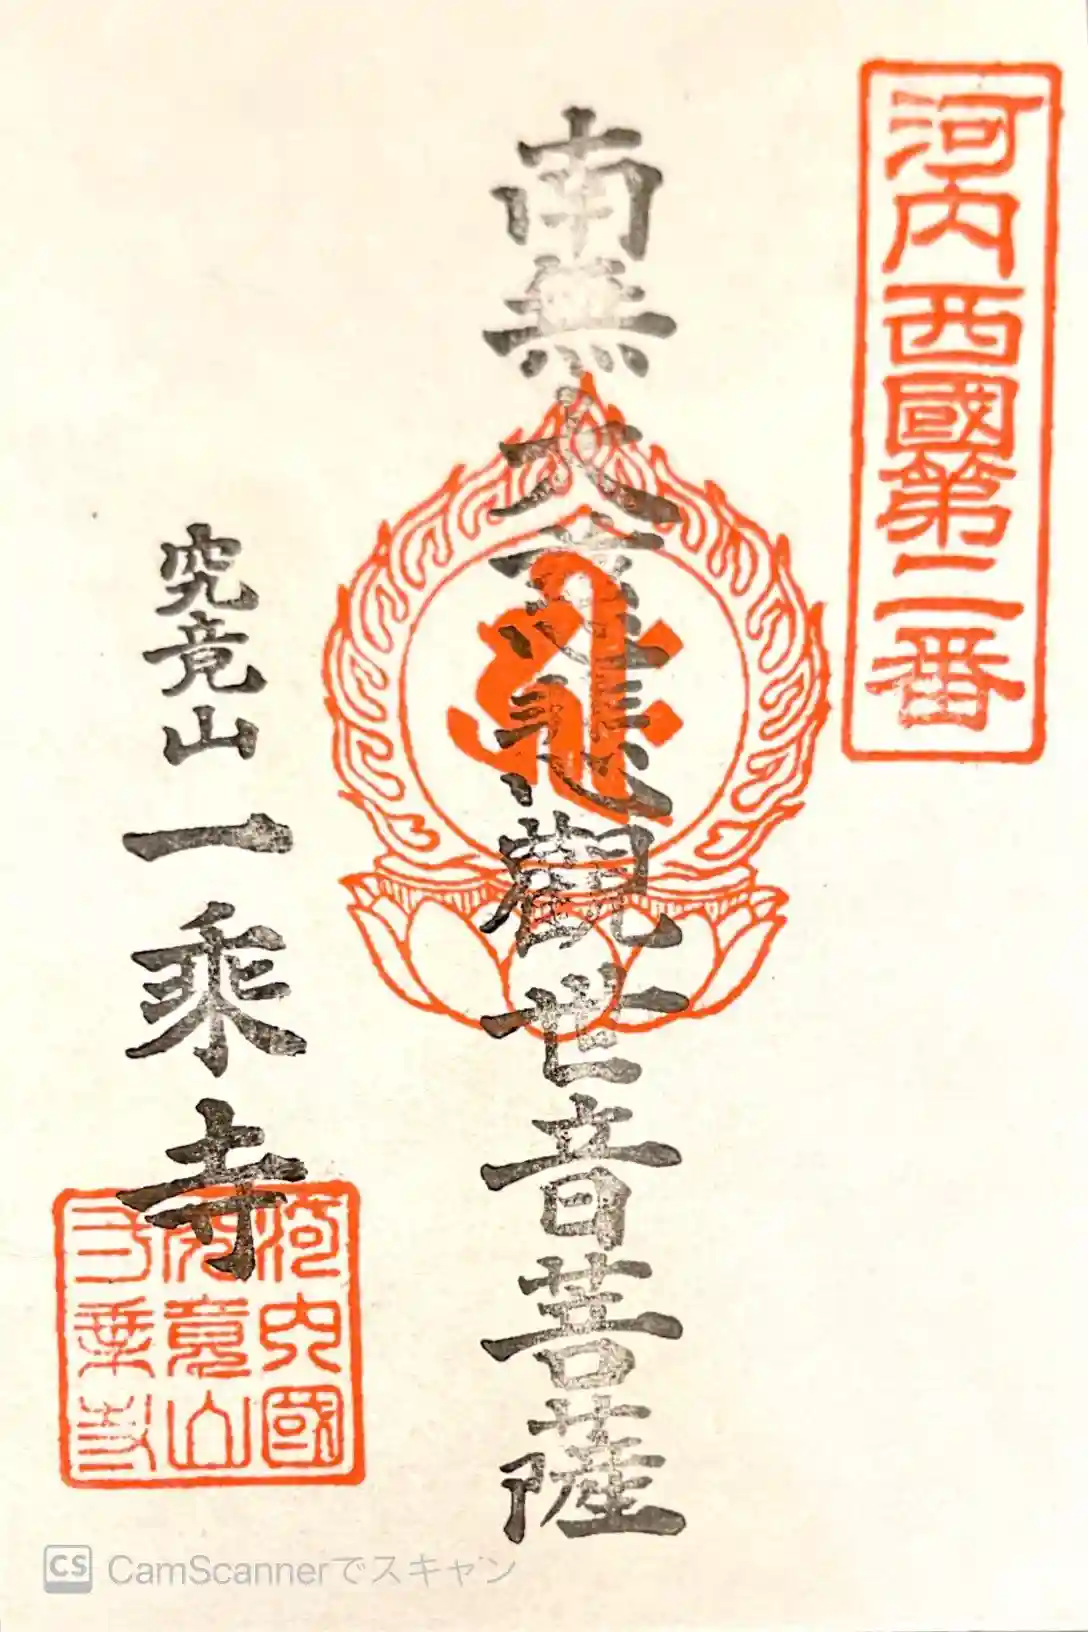 河内西國第二番
南無大慈大悲觀世音菩薩
究竟山一乘寺
河内國
究竟山
一乘寺
CS CamScannerでスキャン